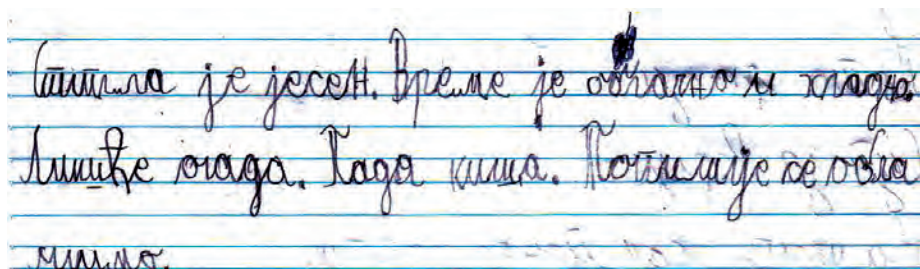 Стигла је јесен. Време је облачно и хладно.
Лишће опада. Пада киша. Потмилије се обла
чимо.